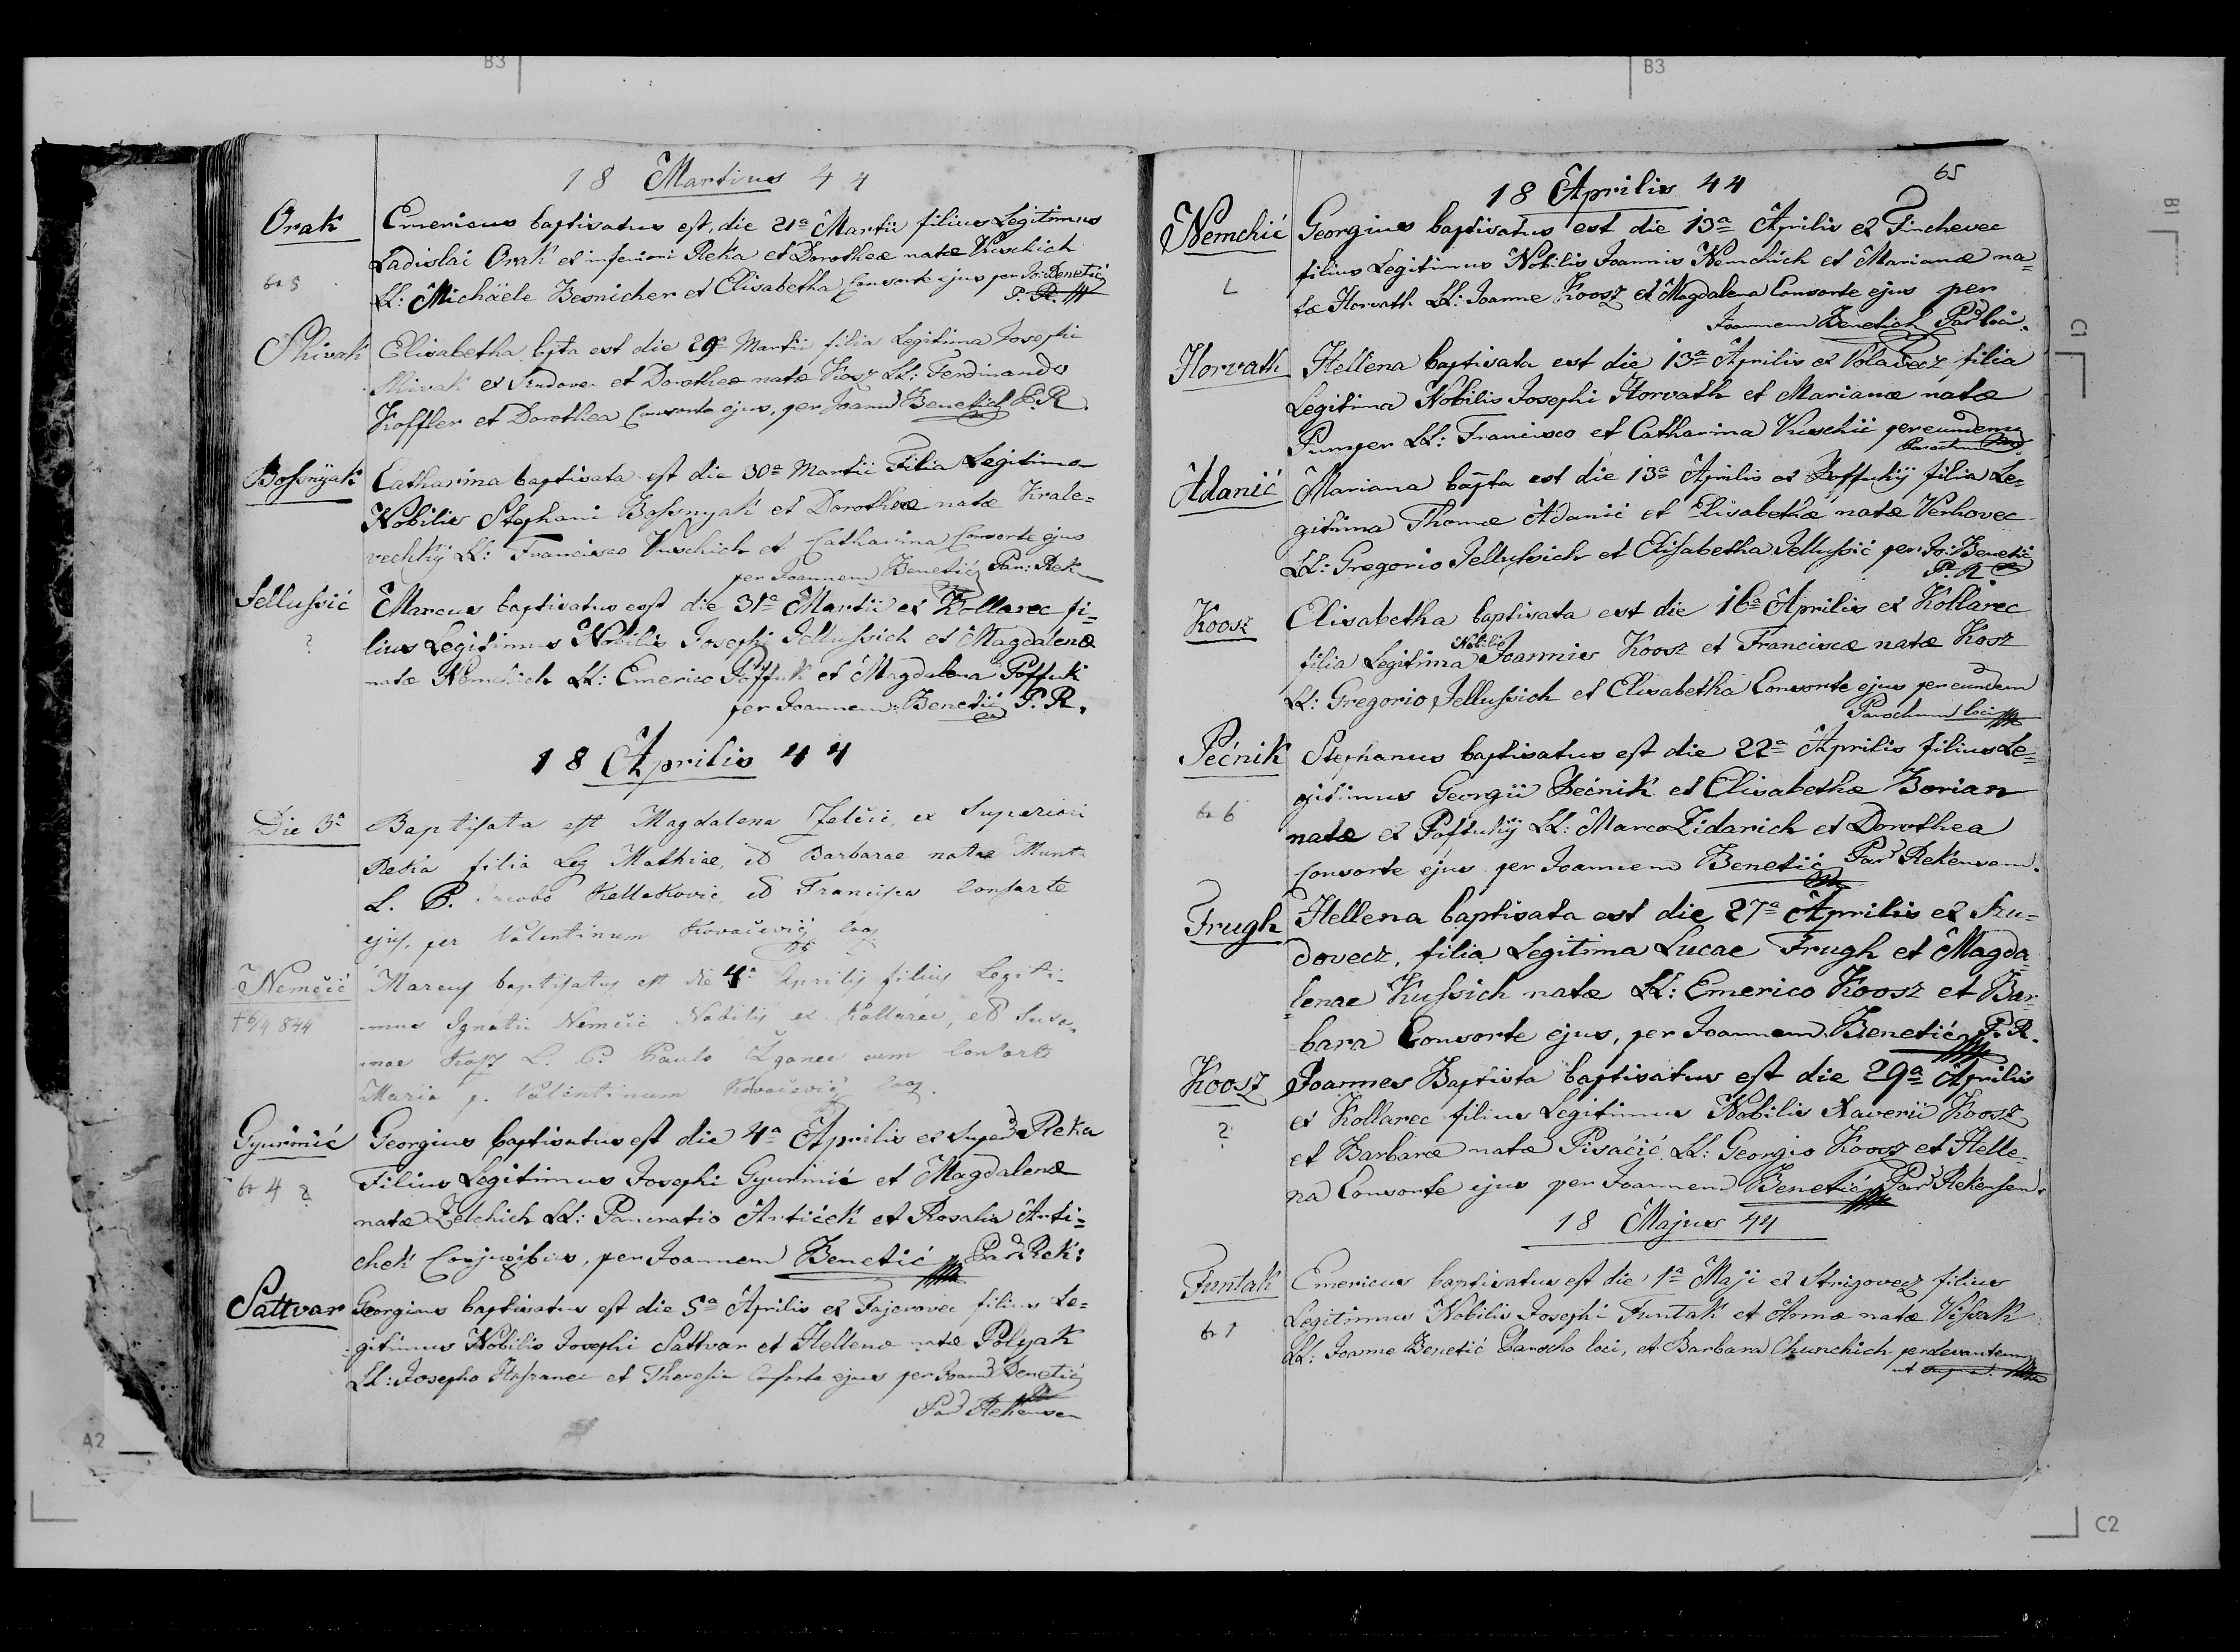 B3
B3
B1
C1
A2
C2
18 Martius 44
Orak
Emericus baptisatus est, die 21a Martii filius Legitimus
Ladislai Orak ex inferiori Reka et Dorotheæ natæ Vuschich
LL: Michaële Besnicher et Elisabetha Consorte ejus per Jo: Benetić
P. R.
Elisabetha bpta est die 29a Martii filia Legitima Josephi
et Dorotheæ natæ Kosz LL: Ferdinando
Koffler et Dorothea Consorte ejus, per Joann Benetich P. R.
Bossnyak
Catharina baptisata est die 30a Martii Filia Legitima
Nobilis Stephani Bossnyak et Dorotheæ natæ Krale=
vechkÿ LL: Francisco Vuschich et Catharina Consorte ejus
per Joannem Benetić Par: Rek
Jellussić
?
Marcus baptisatus est die 31a Martii ex Kollarec fi=
lius Legitimus Nobilis Josephi Jellussich et Magdalenæ
natæ Nemchich LL: Emerico Poffuk et Magdalena Poffuk
per Joannem Benetić P. R.
18 Aprilis 44
Die 3a
Baptisata est Magdalena Želčić, ex Superiori
Reka filia Leg Mathiae, et Barbarae natae
L. P. Jacobo Kellekovic, et Francisca Consorte
ejus, per Valentinum Kovačević Coop
Nemčić
+ 6/9 844
Marcus baptisatus est die 4a Aprilis filius Legiti-
mus Ignatii Nemčić Nobilis ex Kollarec, et Susa-
nae Kosz L. P. Paulo Žganec cum Consorte
Maria p. Valentinum Kovačević Coop.
Gyurinić
br 4 ?
Georgius baptisatus est die 4a Aprilis ex Super Reka
Filius Legitimus Josephi Gyurinić et Magdalenæ
natæ Zelchich LL: Pancratio Artićek et Rosalia Arti=
chek Conjugibus, per Joannem Benetić Par Rek:
Sattvar
Georgius baptisatus est die 5a Aprilis ex Fajerovec filius Le=
gitimus Nobilis Josephi Sattvar et Hellenæ natæ Polyak
LL: Josepho et Theresia Consorte ejus per Joann Benetić
Par Rekensen
18 Aprilis 44
65
Nemchić
Georgius baptisatus est die 13a Aprilis ex Finchevec
filius Legitimus Nobilis Joannis Nemchich et Marianæ na=
tæ Horvath LL: Joanne Koosz et Magdalena Consorte ejus per
Joannem Benetich Par loci.
Horvath
Hellena baptisata est die 13a Aprilis ex Volavecz filia
Legitima Nobilis Josephi Horvath et Marianæ natæ
Pumper LL: Francisco et Catharina Vuschii per eundem
Parochum
Adanić
Mariana bapta est die 13a Aprilis ex Poffukÿ filia Le=
gitima Thomæ Adanić et Elisabethæ natæ Verhovec
LL: Gregorio Jellussich et Elisabetha Jellussić per Jo: Benetić
P. R
Koosz
Elisabetha baptisata est die 16a Aprilis ex Kollarec
filia Legitima Nobilis Joannis Koosz et Franciscæ natæ Kosz
LL: Gregorio Jellussich et Elisabetha Consorte ejus per eundem
Parochum loci
Pećnik
br 6
Stephanus baptisatus est die 22a Aprilis filius Le=
gitimus Georgii Pećnik et Elisabethæ Borian
natæ ex Poffukÿ LL: Marco Zidarich et Dorothea
Consorte ejus per Joannem Benetić Par Rekensem.
Frugh
Hellena baptisata est die 27a Aprilis ex Szu=
dovecz, filia Legitima Lucae Frugh et Magda=
lenae Kussich natæ LL: Emerico Koosz et Bar=
bara Consorte ejus, per Joannem Benetić P. R.
Koosz
?
Joannes Baptista baptisatus est die 29a Aprilis
ex Kollarec filius Legitimus Nobilis Xaverii Koosz
et Barbaræ natæ Pisačić LL: Georgio Koosz et Helle=
na Consorte ejus per Joannem Benetić Par Rekensen.
18 Majus 44
Funtak
br 1
Emericus baptisatus est die 1a Maji ex Strigovecz filius
Legitimus Nobilis Josephi Funtak et Annæ natæ Vissak
LL: Joanne Benetić Parocho loci, et Barbara Chunchich per levantem
ut supra.